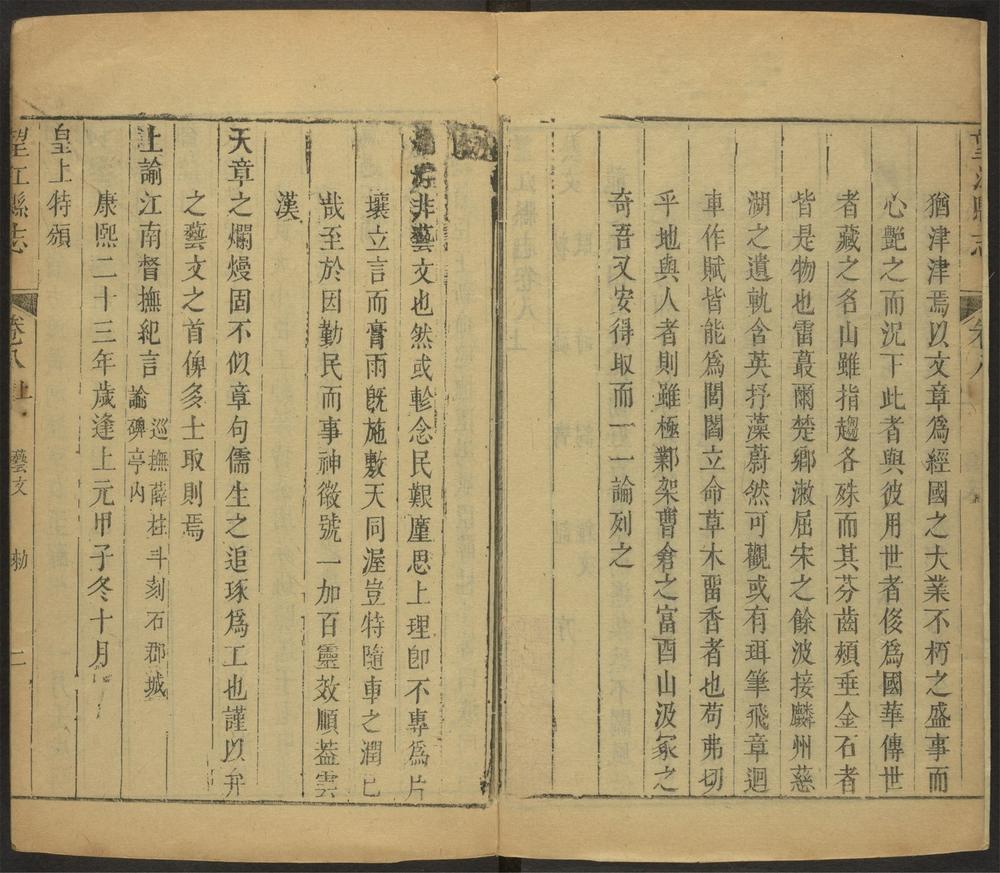 猶津津焉以文章為經國之大業不朽之盛事而
心艷之而況下此者與彼用世者俊為國華傳世
者藏之名山雖指趨各殊而其芬齒頰垂金石者
皆是物也雷蕞爾楚鄉漱屈宋之餘波接麟州慈
湖之遺軌含英抒藻蔚然可觀或有珥筆飛章迴
車作賦皆能為閭閻立命草木留香者也苟弗切
乎地與人者則雖極鄴架曹倉之富酉山汲冢之
奇吾又安得取而一一論列之
非藝文也然或軫念民艱廑思上理卽不專為片
壤立言而膏雨旣施敷天同渥豈特隨車之潤已
哉至於因勤民而事神徽號一加百靈效順葢雲
漢
天章之爛熳固不似章句儒生之追琢為工也謹以弁
之藝文之首俾多士取則焉
上諭江南督撫紀言
巡撫薛柱斗刻石郡城
論碑亭內
康熙二十三年歲逢上元甲子冬十月
皇上特頒
望江縣志
卷八上
藝文
勅
二